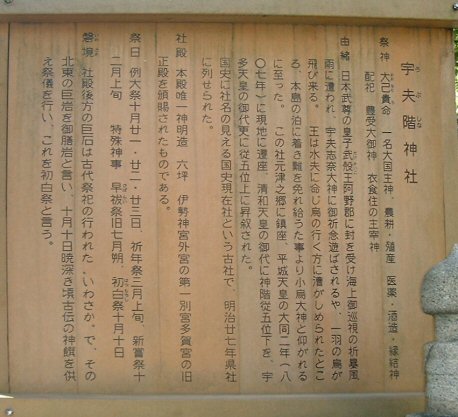 うぶしな
宇夫階神社
祭神 大己貴命 一名大国主神 農耕・殖産 医薬・酒造・縁結神
配祀 豊受大御神 衣食住の主宰神
由緒 日本武尊の皇子武殻王阿野郡に封を受け海上御巡視の折暴風
雨に遭われ 宇夫志奈大神に御祈念遊ばされるや、一羽の烏が
飛び来る。 王は水夫に命じ烏の行く方に漕がしめられたとこ
ろ、本島の泊に着き難を免れ給うた事より小烏大神と仰がれる
に至った。 この社元津之郷に鎮座、平城天皇の大同二年(八
〇七年)に現地に遷座、清和天皇の御代に神階従五位下を、宇
多天皇の御代更に従五位上に昇叙された。
国史に社名の見える国史現在社という古社で、明治廿七年県社
に列せられた。
社殿 本殿唯一神明造 六坪 伊勢神宮外宮の第一別宮多賀宮の旧
正殿を頒賜されたものである。
祭日 例大祭十月廿一・廿二・廿三日 祈年祭三月上旬、新嘗祭十
二月上旬 特殊神事 早祓祭旧七月朔、初白祭十月十日
磐境 社殿後方の巨石は古代祭祀の行われた〝いわさか〟で、その
北東の巨岩を御膳岩と言い、十月十日暁深き頃古伝の神饌を供
え祭儀を行い、これを初白祭と言う。